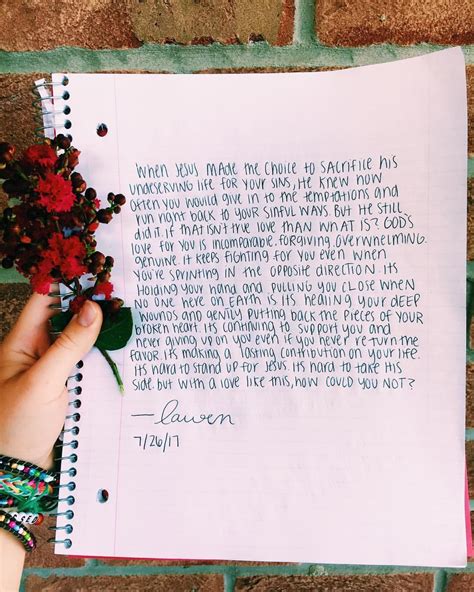 When Jesus made the choice to sacrifice his
undeserving life for your sins, He knew how
often you would give in to the temptations and
run right back to your sinful ways. But He still
did it. if that isn't true love than what is? God's
love for you is incomparable. forgiving. overwhelming.
genuine. it keeps fighting for you even when
you're sprinting in the opposite direction. its
Holding your hand and pulling you close when
no one here on Earth is. its healing your deep
wounds and gently putting back the pieces of your
broken heart. its continuing to support you and
never giving up on you even if you never return the
favor. its making a lasting contribution on your life.
its hard to stand up for Jesus. its hard to take his
side. but with a love like this, how could you not?
—lauren
7/26/17